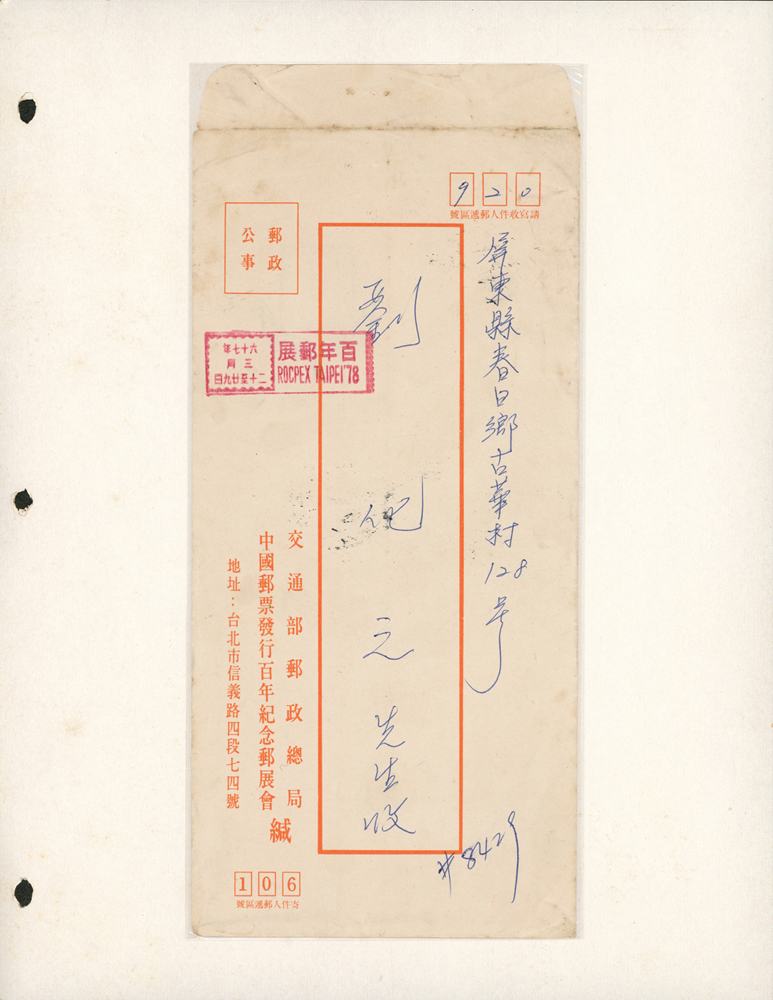 920
請寫收件人郵遞區號
屏東縣春日鄉古華村128号
郵政
公事
百年郵展
ROCPEX TAIPEI'78
六十七年
三月
二十至廿九日
劉 元 先生收
交通部郵政總局
中國郵票發行百年紀念郵展會 緘
地址：台北市信義路四段七四號
106
寄件人郵遞區號